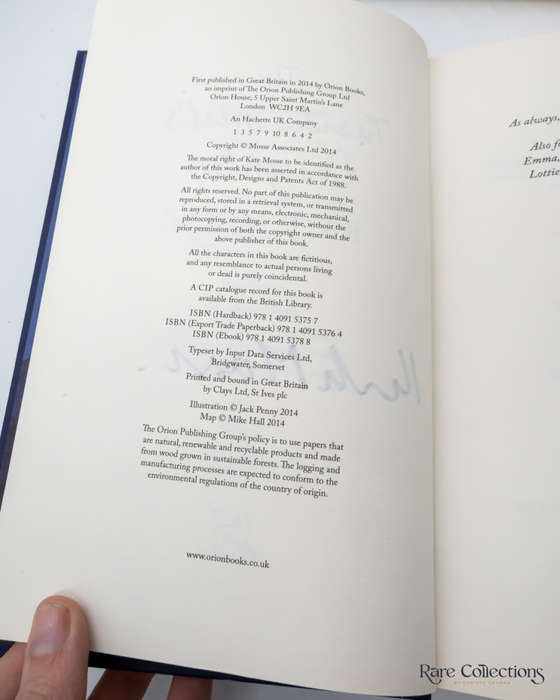 First published in Great Britain in 2014 by Orion Books,
an imprint of The Orion Publishing Group Ltd
Orion House, 5 Upper Saint Martin's Lane
London WC2H 9EA
An Hachette UK Company
1 3 5 7 9 10 8 6 4 2
Copyright © Mosse Associates Ltd 2014
The moral right of Kate Mosse to be identified as the
author of this work has been asserted in accordance with
the Copyright, Designs and Patents Act of 1988.
All rights reserved. No part of this publication may be
reproduced, stored in a retrieval system, or transmitted
in any form or by any means, electronic, mechanical,
photocopying, recording, or otherwise, without the
prior permission of both the copyright owner and the
above publisher of this book.
All the characters in this book are fictitious,
and any resemblance to actual persons living
or dead is purely coincidental.
A CIP catalogue record for this book is
available from the British Library.
ISBN (Hardback) 978 1 4091 5375 7
ISBN (Export Trade Paperback) 978 1 4091 5376 4
ISBN (Ebook) 978 1 4091 5378 8
Typeset by Input Data Services Ltd,
Bridgwater, Somerset
Printed and bound in Great Britain
by Clays Ltd, St Ives plc
Illustration © Jack Penny 2014
Map © Mike Hall 2014
The Orion Publishing Group's policy is to use papers that
are natural, renewable and recyclable products and made
from wood grown in sustainable forests. The logging and
manufacturing processes are expected to conform to the
environmental regulations of the country of origin.
www.orionbooks.co.uk
As always,
Also f
Emma,
Lottie
Rare Collections